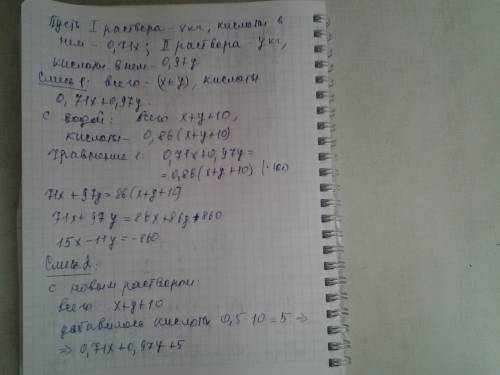 Пусть I раствора - x кг, кислоты в
нем - 0,71x; II раствора - y кг,
кислоты в нем - 0,97y
Смесь 1: всего - (x+y), кислоты
0,71x+0,97y.
С водой: всего x+y+10,
кислоты - 0,86(x+y+10)
Уравнение 1: 0,71x+0,97y=
=0,86(x+y+10) |·100
71x+97y=86(x+y+10)
71x+97y=86x+86y+860
15x-11y=-860
Смесь 2:
С новым раствором:
всего x+y+10
добавилось кислоты 0,5·10=5 ⇒
⇒ 0,71x+0,97y+5